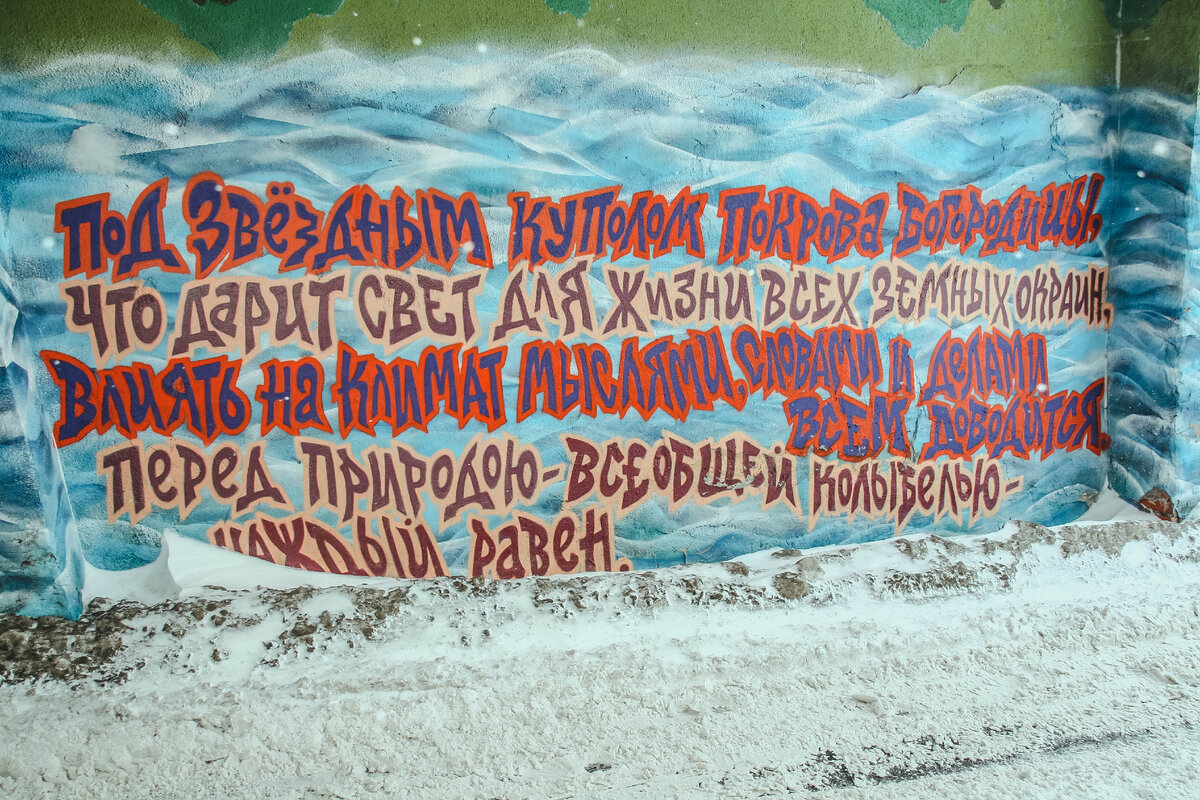 Под Звёздным куполом Покрова Богородицы,
Что дарит свет для жизни всех земных окраин,
Влиять на климат мыслями, словами и делами
всем доводится.
Перед природою-всеобщей колыбелью-
каждый равен.